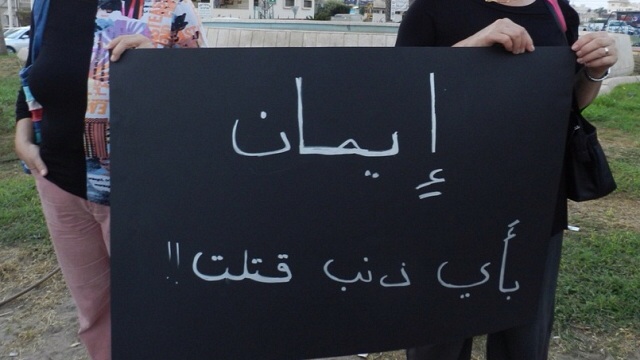 إيمان
بأي ذنب قتلت!!